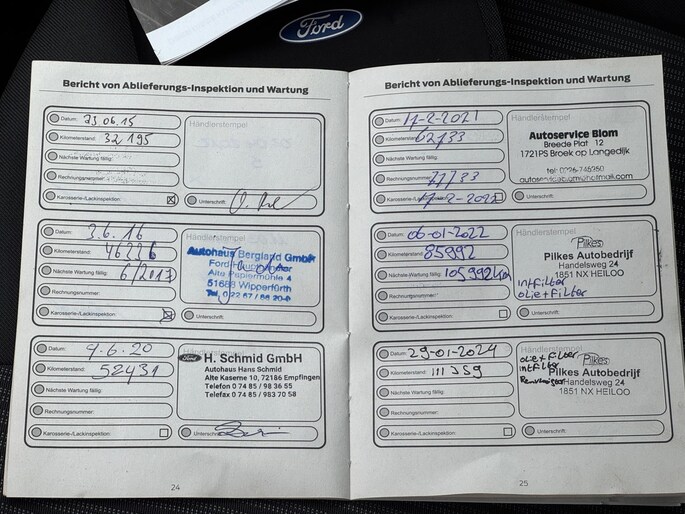 Ford
Bericht von Ablieferungs-Inspektion und Wartung
Datum: 23.06.15
Kilometerstand: 32 195
Nächste Wartung fällig:
Rechnungsnummer:
Karosserie-/Lackinspektion:
Händlerstempel
Unterschrift:
Datum: 3.6.16
Kilometerstand: 46226
Nächste Wartung fällig: 6/2017
Rechnungsnummer:
Karosserie-/Lackinspektion:
Händlerstempel
Autohaus Bergland GmbH
Alte Papiermühle 4
51688 Wipperfürth
Unterschrift:
Datum: 9.6.20
Kilometerstand: 52431
Nächste Wartung fällig:
Rechnungsnummer:
Karosserie-/Lackinspektion:
Ford H. Schmid GmbH
Autohaus Hans Schmid
Alte Kaserne 10, 72186 Empfingen
Telefon 0 74 85 / 98 36 55
Telefax 0 74 85 / 983 70 58
Unterschrift:
24
Bericht von Ablieferungs-Inspektion und Wartung
Datum: 17-2-2021
Kilometerstand: 62733
Nächste Wartung fällig:
Rechnungsnummer:
Karosserie-/Lackinspektion: 17-2-2022
Händlerstempel
Autoservice Blom
Breede Plat 12
1721PS Broek op Langedijk
tel: 0226-745350
Unterschrift:
Datum: 06-01-2022
Kilometerstand: 85992
Nächste Wartung fällig: 105992km
Rechnungsnummer:
Karosserie-/Lackinspektion:
Händlerstempel
Pilkes
Pilkes Autobedrijf
Handelsweg 24
1851 NX HEILOO
intfilter
olie+filter
Unterschrift:
Datum: 29-01-2024
Kilometerstand: 111359
Nächste Wartung fällig:
Rechnungsnummer:
Karosserie-/Lackinspektion:
Händlerstempel
olie+filter
intfilter
Pilkes
Pilkes Autobedrijf
Handelsweg 24
1851 NX HEILOO
Unterschrift:
25